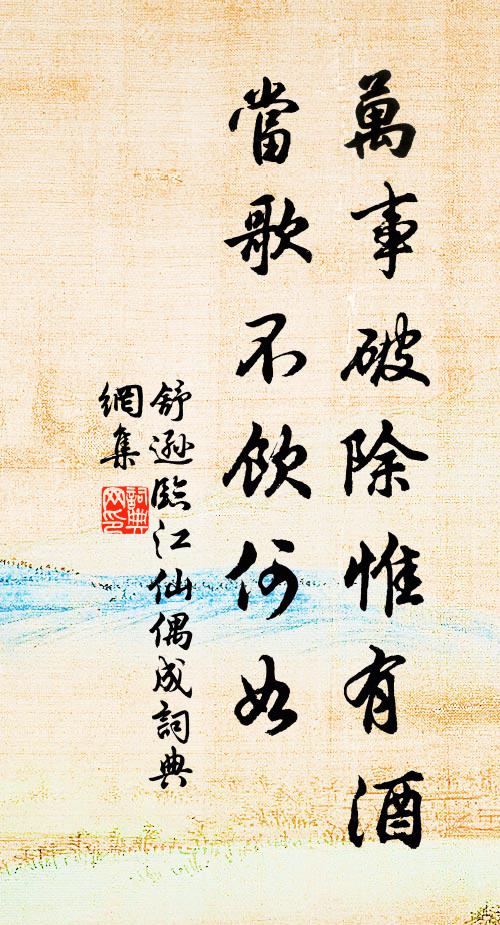 萬事破除惟有酒
當歌不飲何如
舒遜臨江仙偶成詞典
網集
詞典網印